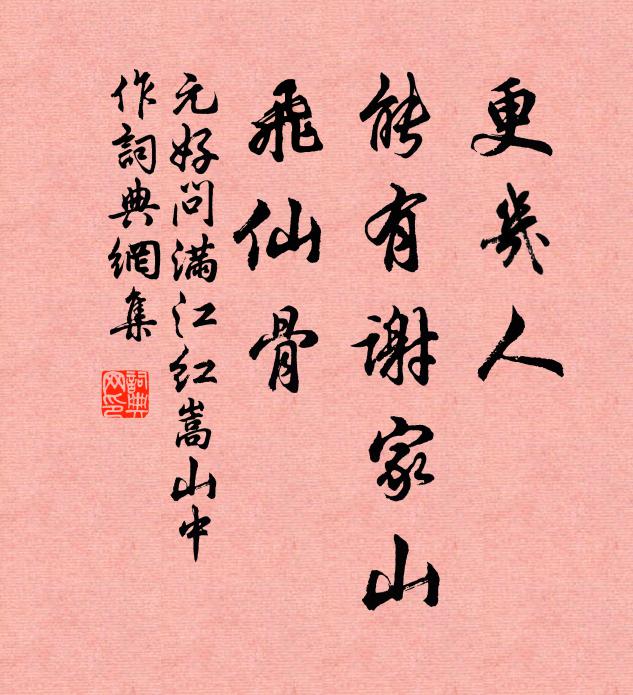 更几人
能有谢家山
飛仙骨
元好問满江红嵩山中
作詞典網集
詞典网印